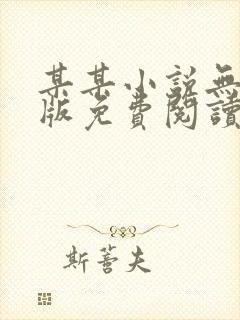 某某小說無
版免費閱讀
斯蕾夫